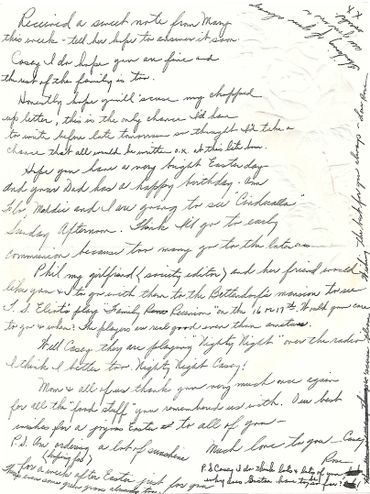 Received a sweet note from Mary
this week - tell her hope to answer it soon.
Casey I do hope you are fine and
the rest of the family is too.
Honestly hope you'll 'scuse my chopped
up letter, this is the only chance I'd have
to write before late tomorrow so thought I'd take a
chance that all would be quite o.k. at this late hour.
Hope you have a very bright Easter day
and your Dad has a happy birthday.
and I are going to see "Cinderella"
Sunday Afternoon. Think I'll go to early
communion because too many go to the later one.
Phil my girlfriend (society editor) and her friend would
like you & I to go with them to the Bettendorf's mansion to see
T. S. Eliot's play "Family Reunion" on the 16 or 17th. Would you care
to go & when? The players are real good even tho amateurs.
Well Casey they are playing "Nighty Night" over the radio
I think I better too. Nighty Night Casey!
Mom & all of us thank you very much once again
for all the "food stuff" you remembered us with. Our best
wishes for a joyous Easter to all of you -
Much love to you - Casey
Rose
P.S. Am ordering a lot of sunshine
(hoping for)
for a week after Easter just for you
P.S Casey I do think lots & lots of you
Wishing the best for you always - love Rose